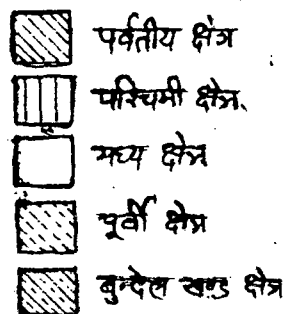 पर्वतीय क्षेत्र
पश्चिमी क्षेत्र.
मध्य क्षेत्र
पूर्वी क्षेत्र
बुन्देल खण्ड क्षेत्र